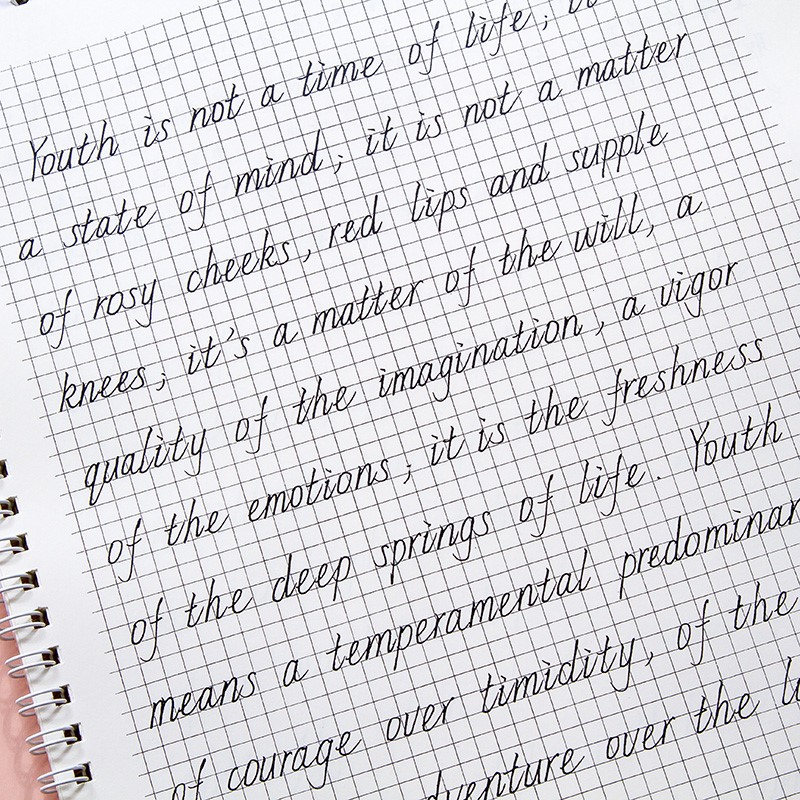 Youth is not a time of life; it
a state of mind; it is not a matter
of rosy cheeks, red lips and supple
knees; it's a matter of the will, a
quality of the imagination, a vigor
of the emotions; it is the freshness
of the deep springs of life. Youth
means a temperamental
of courage over timidity, of the
over the